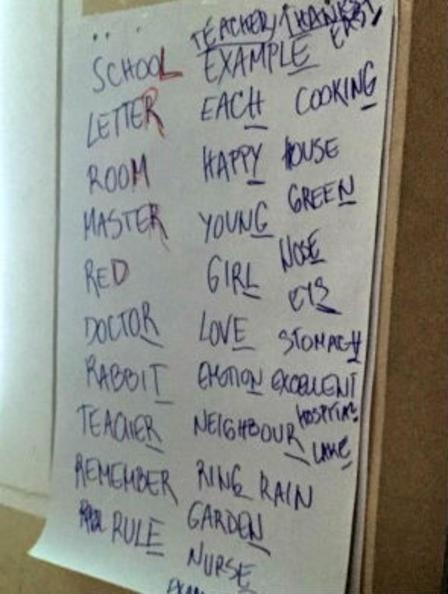 SCHOOL
LETTER
ROOM
MASTER
RED
DOCTOR
RABBIT
TEACHER
REMEMBER
RULE
TEACHER/THANKS
EXAMPLE EASY
EACH COOKING
HAPPY HOUSE
YOUNG GREEN
GIRL NOSE
EYE
LOVE STOMACH
EMOTION EXCELLENT
HOSPITAL
NEIGHBOUR LAKE
RING RAIN
GARDEN
NURSE